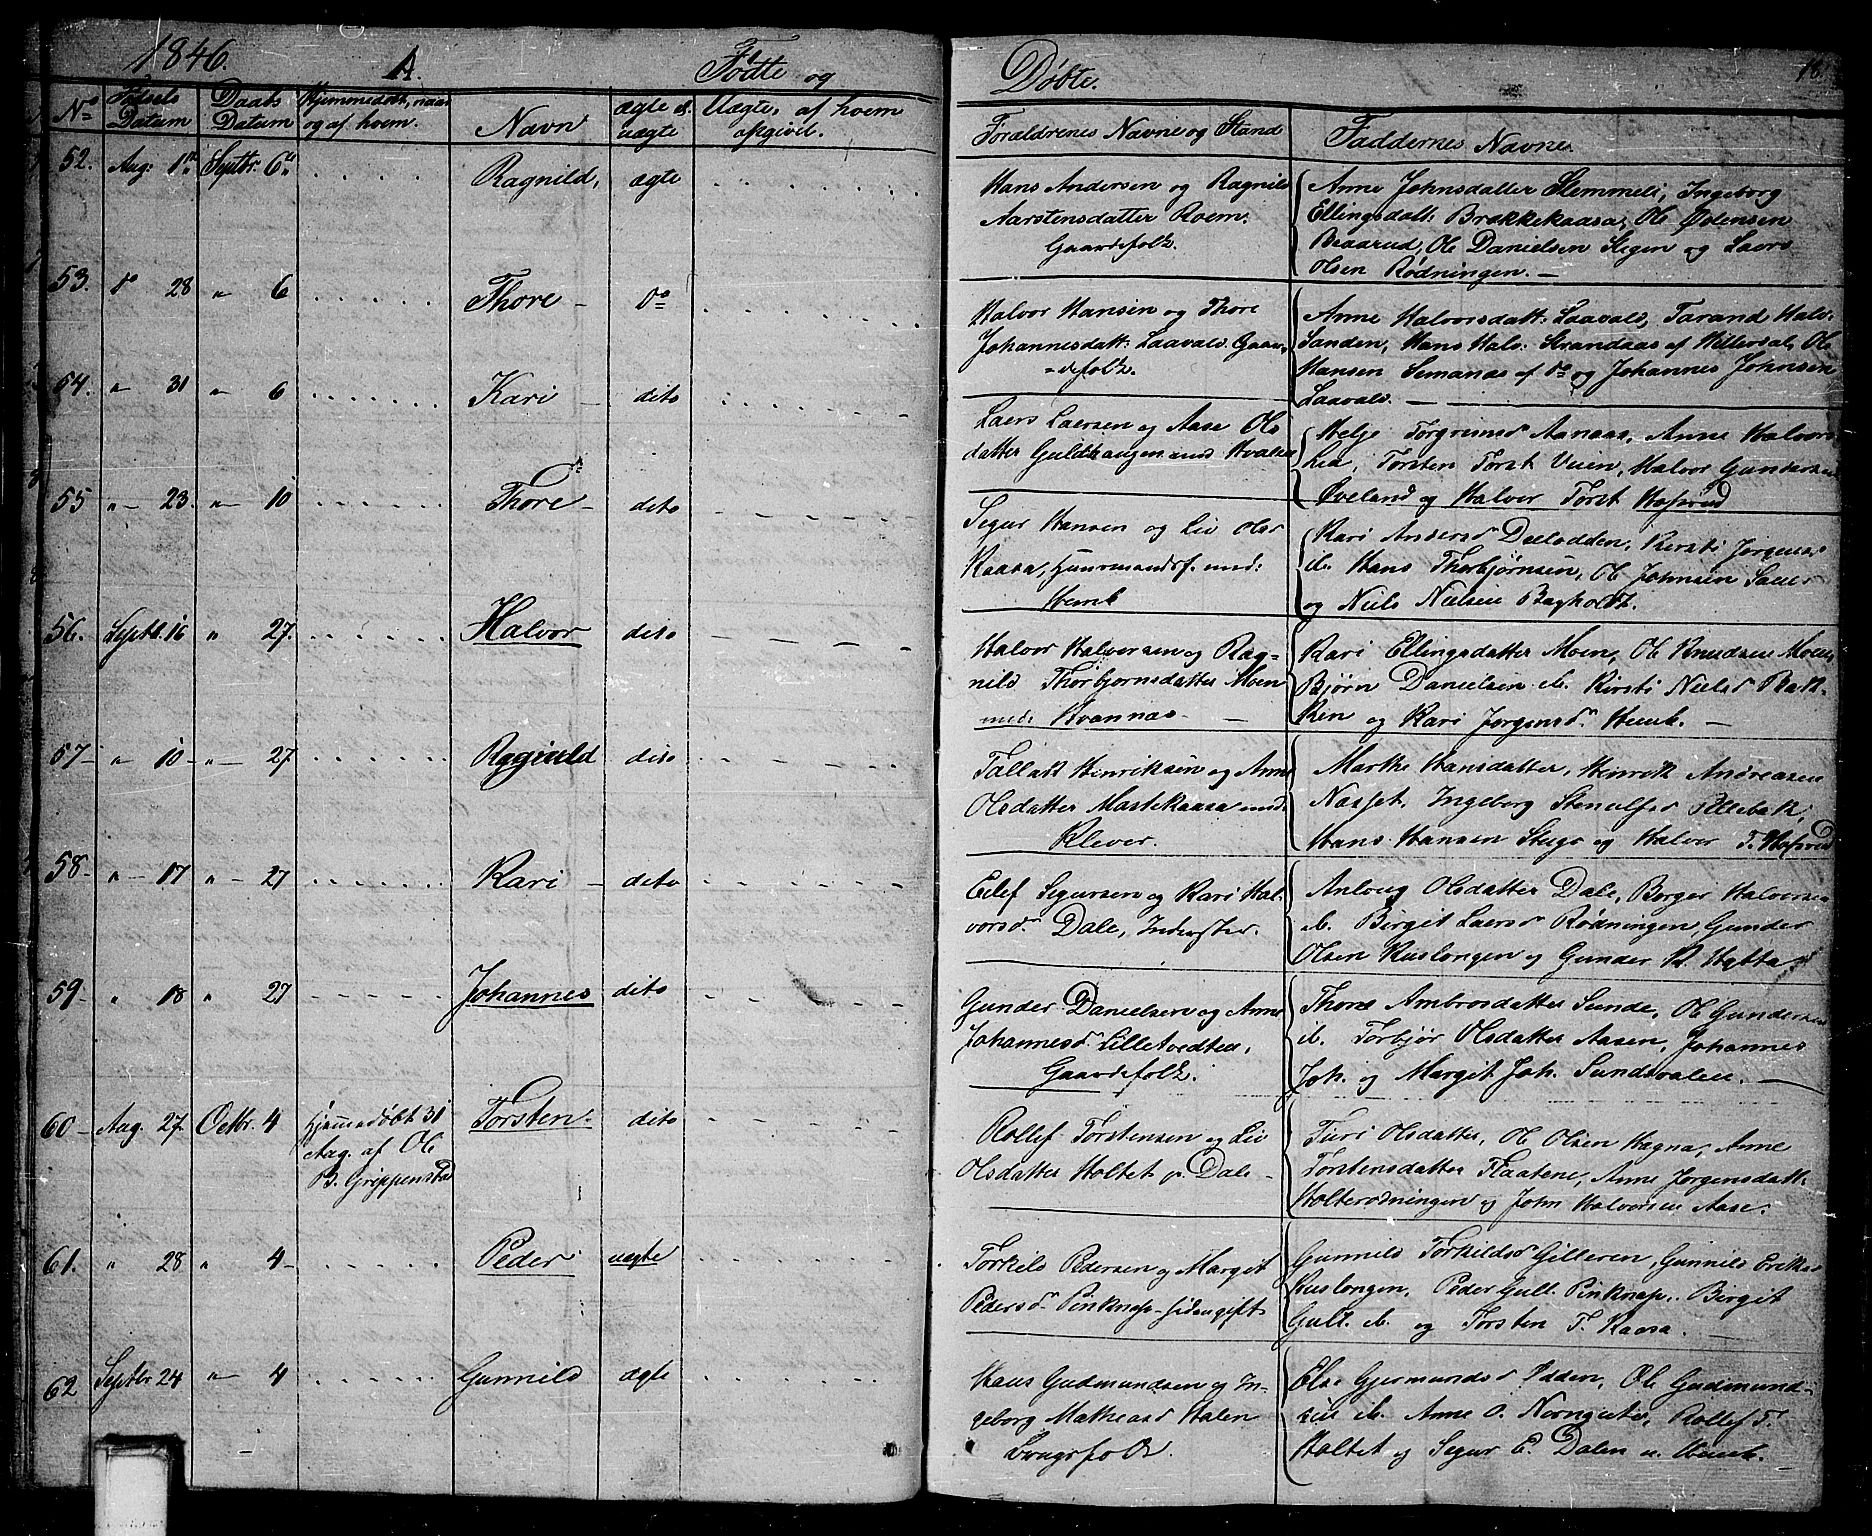 1846. A. Fødte og Døbte. 18.
No Fødsels Datum Daabs Datum Hjemmedøbt, naar og af hvem. Navn ægte el. uægte Uægte, af hvem opgivet. Forældrenes Navne og Stand Faddernes Navne.
52. Aug: 1ste Septbr. 6te Ragnild, ægte
Hans Andersen og Ragnild
Aarstensdatter Roem.
Gaardefolk.
Anne Johnsdatter Slemmeli, Ingeborg
Ellingsdatt: Brækkekaasa, Ole Ødensen
Beaarud, Ole Danielsen Stegen og Laers
Olsen Rødningen.
53. do 28 " 6 Thore do
Halvor Hansen og Thore
Johannesdatt: Laavald. Gaar-
defolk.
Anne Halvorsdatt: Laavald, Tarand Halv:
Sanden, Hans Halv: Strandaas af Hitterdal, Ole
Hansen Semanaas af do og Johannes Johnsen
Laavald.
54. " 31 " 6 Kari dito
Laers Laersen og Aase Ols
datter Guldhaugen und Hvalen
Helje Torgrimsd Aanaas, Anne Halvorsd
Lia, Torsten Torst Veien, Halvor Gundersen
Øveland og Halvor Torst Hafsred
55 " 23. " 10 Thore dito
Segur Hansen og Liv Olsd
Kaasa, Huusmandsf. med:
Hemb
Kari Andersd Dælodden, Kersti Jørgensd
ib. Hans Thorbjørnsen, Ole Johnsen
og Niels Nielsen Bagholdt.
56. Septbr. 16 " 27. Halvor dito
Halvor Halvorsen og Rag-
nild Thorbjornsdatter Moen
med: Hvannas
Kari Ellingsdatter Moen, Ole Knudsen Moen
Bjørn Danielsen ib. Kirsti Nielsd Bak-
ken og Kari Jørgensd Hemb.
57 " 10 " 27. Ragnild dito
Tallak Henriksen og Anne
Olsdatter Mastekaasa und.
Klever.
Marthe Hansdatter, Henrik Andreasen
Nasset, Ingeborg Stenulfsd Pellebak,
Hans Hansen Stugo og Halvor T. Hafsred
58 " 17 " 27 Kari dito
Eilef Segursen og Kari Hal-
vorsd. Dale, Inderster.
Anloug Olsdatter Dale, Borger Halvorsen
ib. Birgit Laersd Rødningen, Gunder
Olsen Kuslongen og Gunder K. Hytta
59 " 18 " 27 Johannes dito
Gunder Danielsen og Anne
Johannesd. Lilletvedten,
Gaardefolk.
Thone Ambrosdatter Sunde, Ole Gundersen
ib. Torbjør Olsdatter Aasen, Johannes
Joh. og Margit Joh. Sundsvalen.
60 Aug. 27. Octbr. 4 Hjemmedøbt 31
Aug. af Ole
B. Grippenstad Torsten. dito
Rollef Torstensen og Liv
Olsdatter Holtet p. Dale
Turi Olsdatter, Ole Olsen Hagna, Anne
Torstensdatter Flaatene, Anne Jørgensdatt.
Holterødningen og John Halvorsen Aase.
61. " 28 " 4 Peder uægte
Torkild Pedersen og Margit
Pedersd. Pinknap
Gunnild Torkildsd Gilleren, Gunnild Eriksd
Kuslongen, Peder Gull. Pinknap, Birgit
Gull. ib. og Torsten T. Kaasa.
62 Septbr. 24 " 4 Gunnild ægte
Hans Gudmundsen og In-
geborg Matheasd Halen
Brugsfolk
Else Gjermundsd Odden, Ole Gudmund-
sen ib. Anne O. Rollef T.
Holtet og Segur E. Dalen u. Hemb.